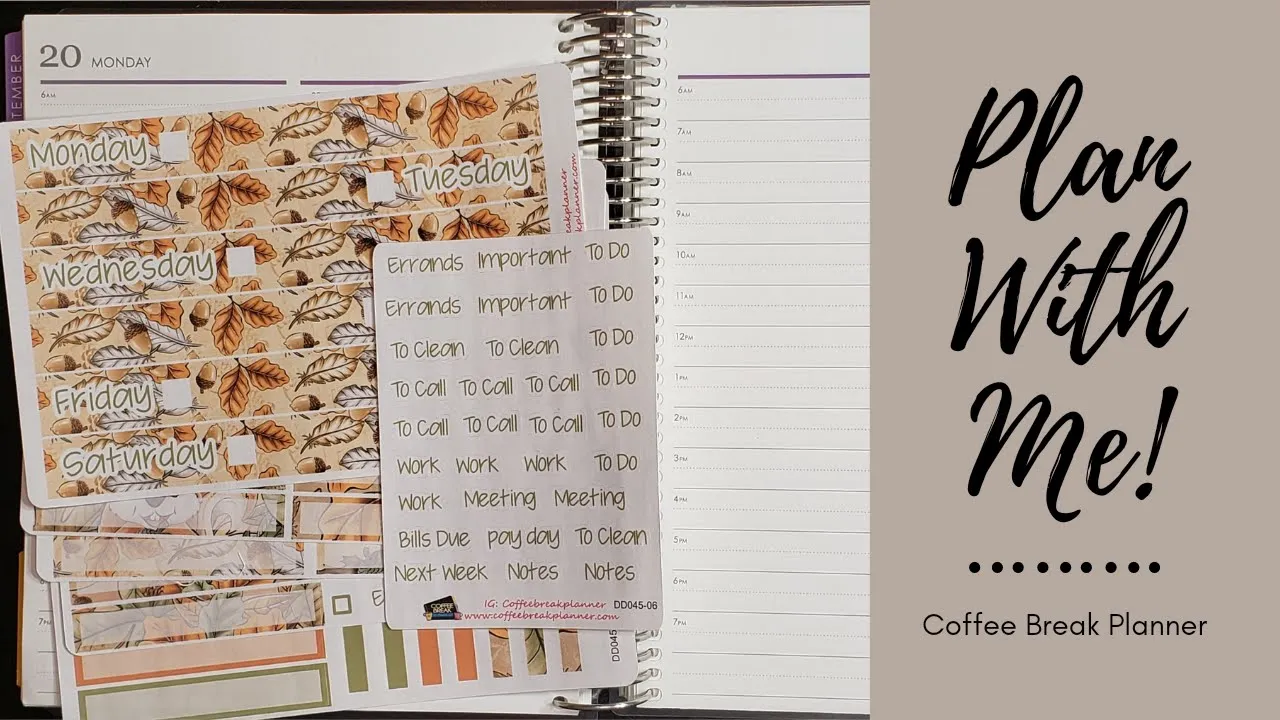 20 MONDAY
TEMBER
6AM
Monday
Tuesday
Wednesday
Friday
Saturday
breakplanner
kplanner.com
Errands Important To Do
Errands Important To Do
To Clean To Clean To Do
To Call To Call To Call To Do
To Call To Call To Call To Do
Work Work Work To Do
Work Meeting Meeting
Bills Due pay day To Clean
Next Week Notes Notes
COFFEE
BREAK
IG: Coffeebreakplanner DD045-06
www.coffeebreakplanner.com
E
DD045
7PM
6AM
7AM
8AM
9AM
10AM
11AM
12PM
1PM
2PM
3PM
4PM
5PM
6PM
7PM
Plan
With
Me!
Coffee Break Planner